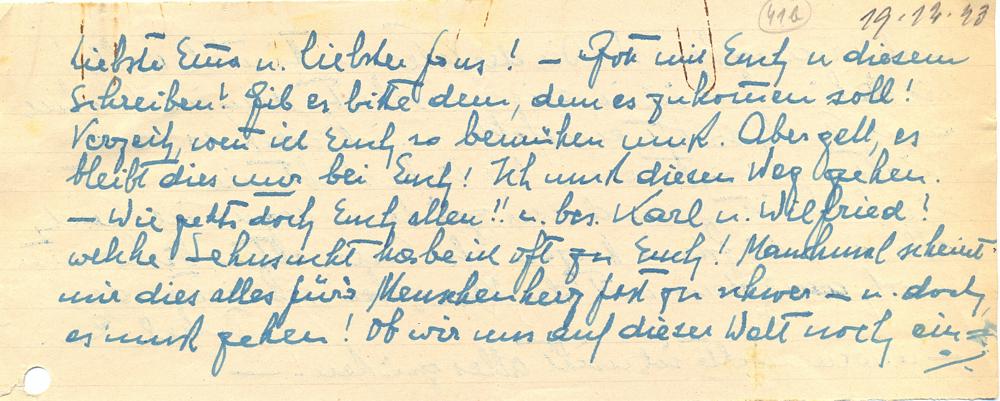 41b
19.12.43
Liebste Etta u. liebster Hans! – Gott mit Euch u diesem
Schreiben! Gib es bitte dem, dem es zukom̄en soll!
Verzeih, wen̄ ich Euch so bemühen muß. Aber gell, es
bleibt dies nur bei Euch! Ich muß diesen Weg gehen.
– Wie geht's doch Euch allen!! u. bes. Karl u. Wilfried!
welche Sehnsucht habe ich oft zu Euch! Manchmal scheint
mir dies alles für's Menschenherz fast zu schwer – u. doch,
es muß gehen! Ob wir uns auf dieser Welt noch ein=
./.